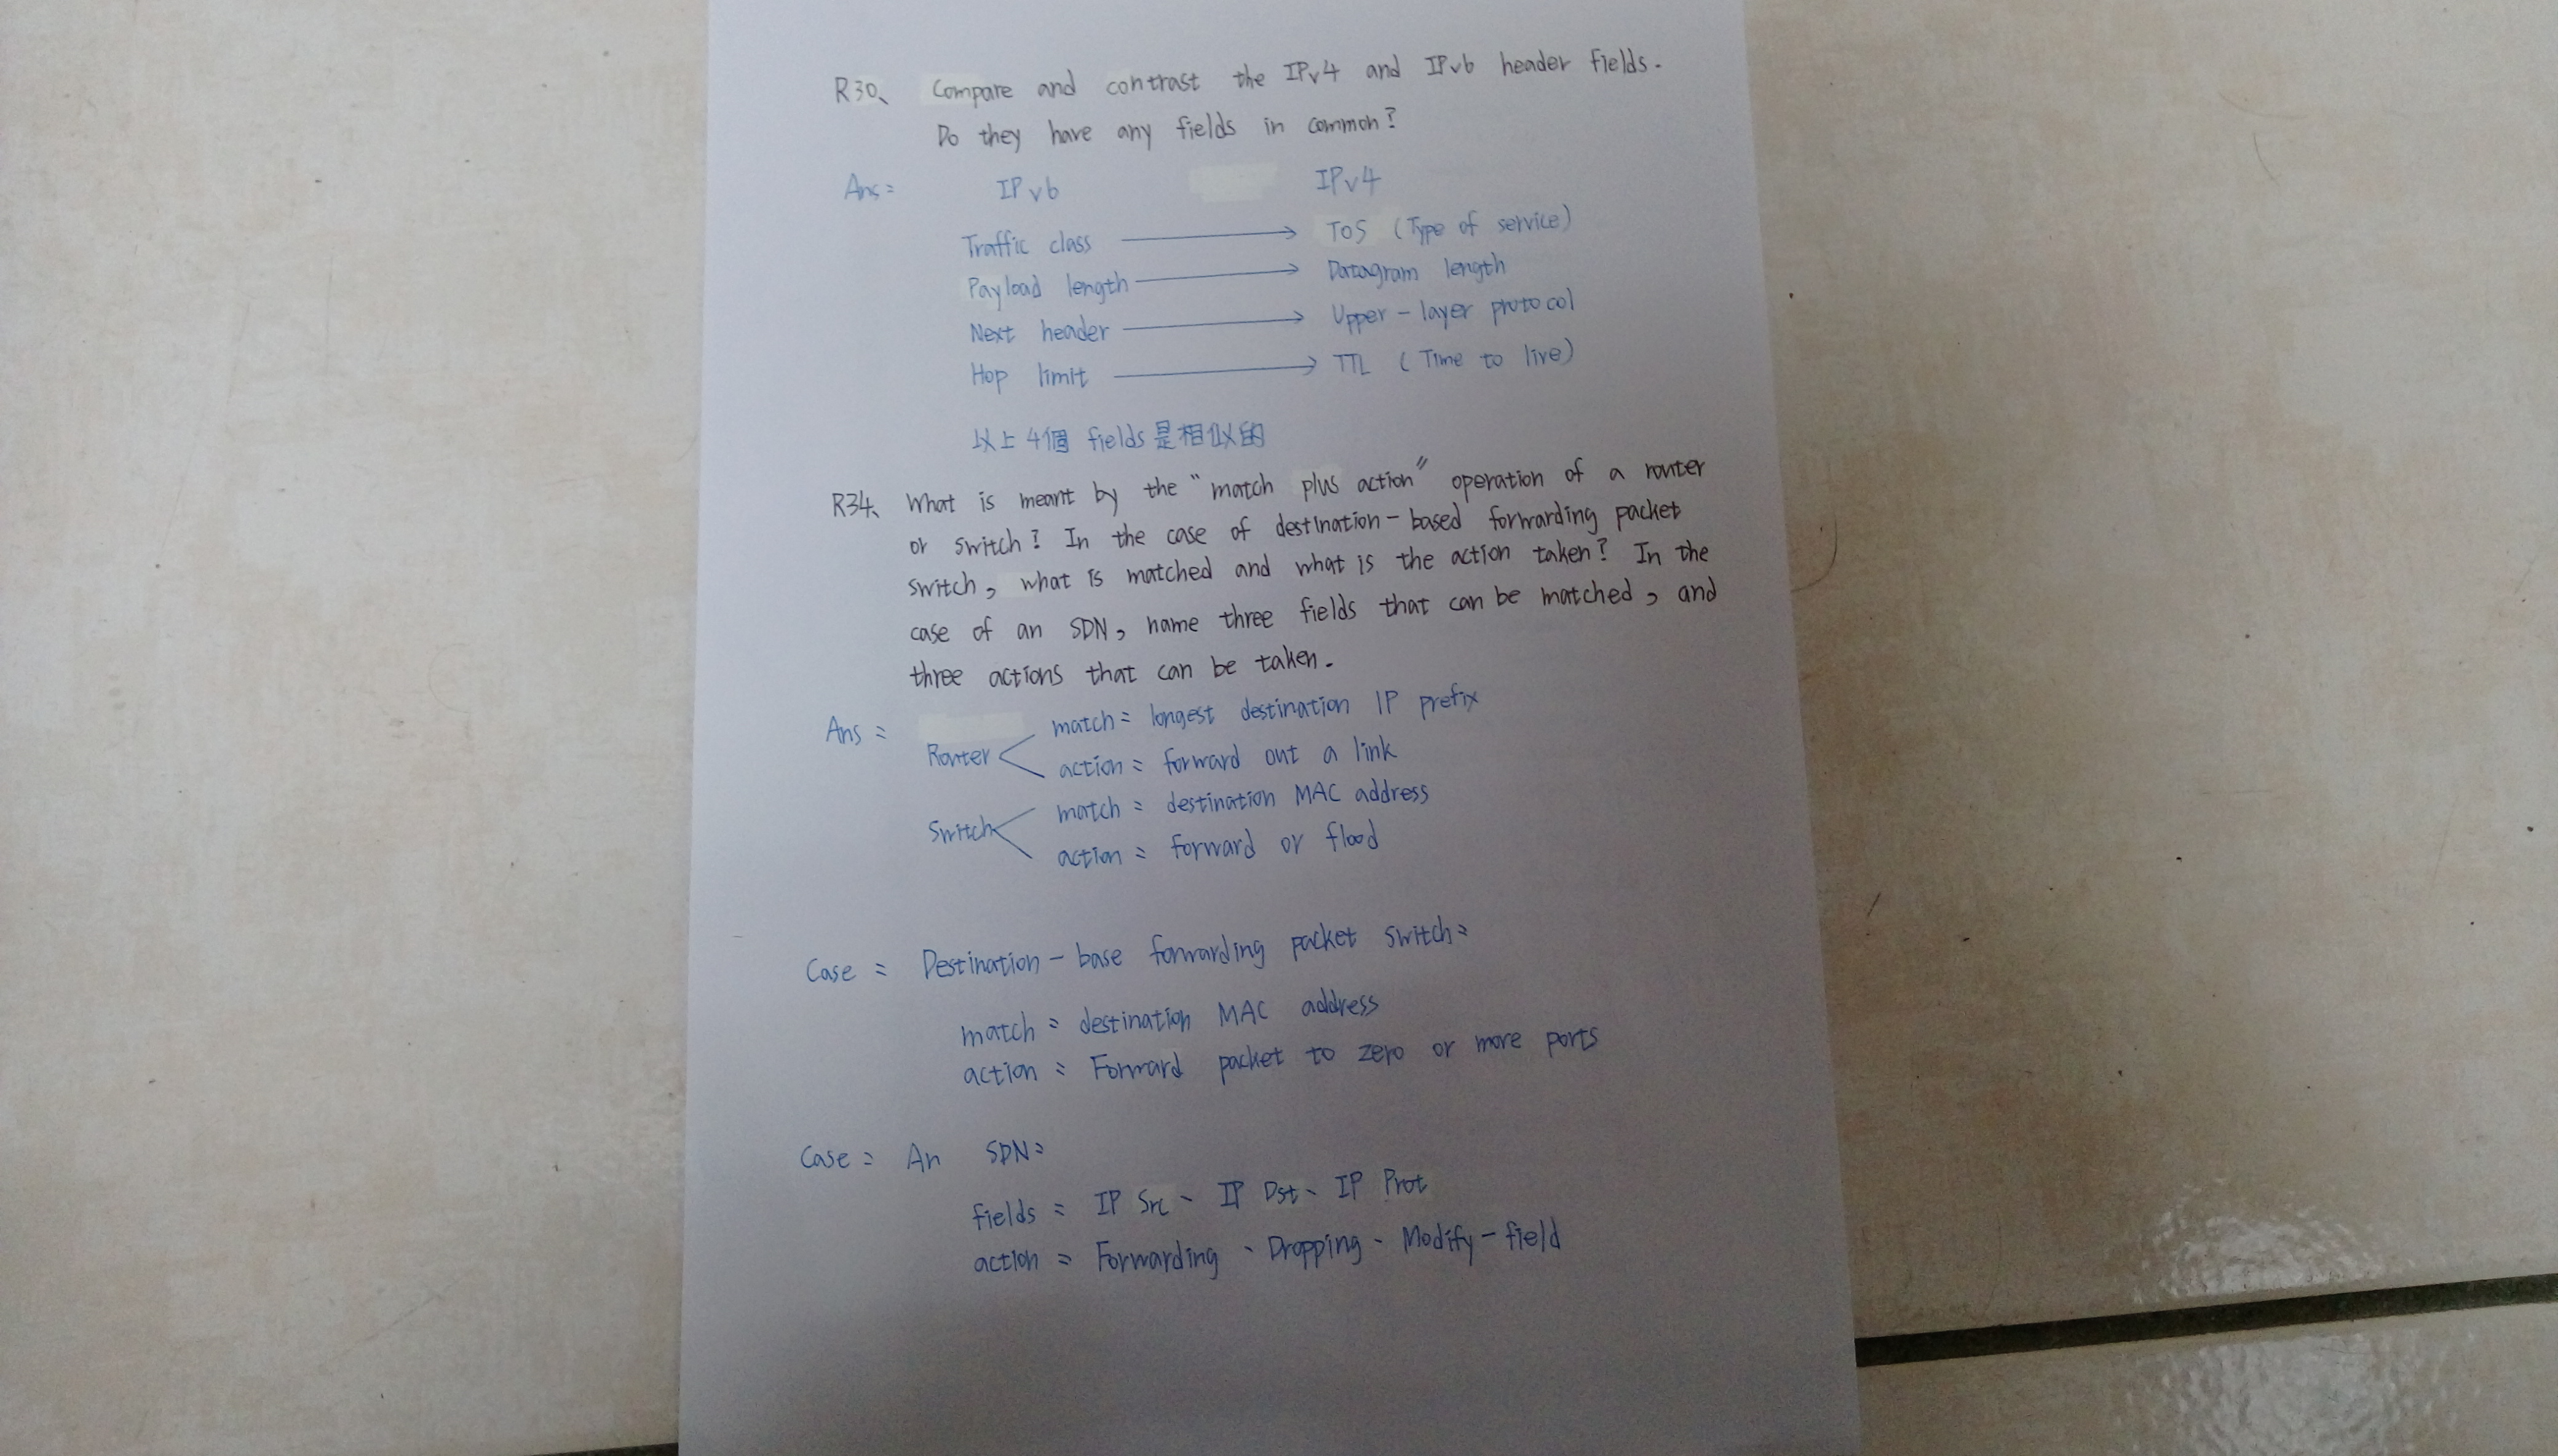 R30、 Compare and contrast the IPv4 and IPv6 header fields.
Do they have any fields in common?
Ans: IPv6 IPv4
Traffic class → TOS (Type of service)
Payload length → Datagram length
Next header → Upper-layer protocol
Hop limit → TTL (Time to live)
以上4個 fields是相似的
R34、 What is meant by the "match plus action" operation of a router
or switch? In the case of destination-based forwarding packet
switch, what is matched and what is the action taken? In the
case of an SDN, name three fields that can be matched, and
three actions that can be taken.
Ans:
Router match: longest destination IP prefix
action: forward out a link
Switch match: destination MAC address
action: forward or flood
Case: Destination-base forwarding packet switch:
match: destination MAC address
action: Forward packet to zero or more ports
Case: An SDN:
fields: IP Src、IP Dst、IP Prot
action: Forwarding、Dropping、Modify-field